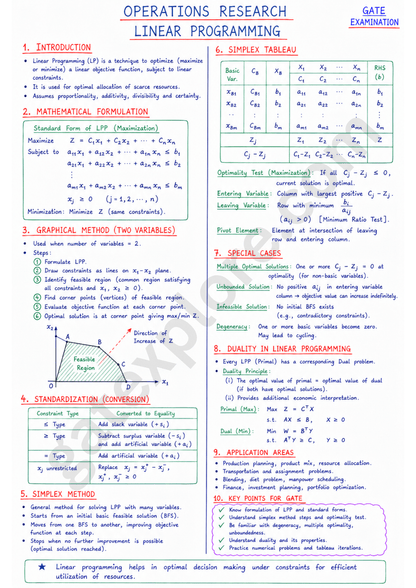 OPERATIONS RESEARCH
LINEAR PROGRAMMING
GATE
EXAMINATION
1. INTRODUCTION
• Linear Programming (LP) is a technique to optimize (maximize
or minimize) a linear objective function, subject to linear
constraints.
• It is used for optimal allocation of scarce resources.
• Assumes proportionality, additivity, divisibility and certainty.
2. MATHEMATICAL FORMULATION
Standard Form of LPP (Maximization)
Maximize Z = C₁x₁ + C₂x₂ + ⋯ + Cₙxₙ
Subject to a₁₁x₁ + a₁₂x₂ + ⋯ + a₁ₙxₙ ≤ b₁
a₂₁x₁ + a₂₂x₂ + ⋯ + a₂ₙxₙ ≤ b₂
⋮
aₘ₁x₁ + aₘ₂x₂ + ⋯ + aₘₙxₙ ≤ bₘ
xⱼ ≥ 0 (j = 1, 2, ⋯, n)
Minimization: Minimize Z (same constraints).
3. GRAPHICAL METHOD (TWO VARIABLES)
• Used when number of variables = 2.
• Steps:
1 Formulate LPP.
2 Draw constraints as lines on x₁-x₂ plane.
3 Identify feasible region (common region satisfying
all constraints and x₁, x₂ ≥ 0).
4 Find corner points (vertices) of feasible region.
5 Evaluate objective function at each corner point.
6 Optimal solution is at corner point giving max/min Z.
x₂
A
B
Direction of
Increase of Z
Feasible
Region
C
O
D
x₁
4. STANDARDIZATION (CONVERSION)
Constraint Type Converted to Equality
≤ Type Add slack variable (+sᵢ)
≥ Type Subtract surplus variable (-sᵢ)
and add artificial variable (+aᵢ)
= Type Add artificial variable (+aᵢ)
xⱼ unrestricted Replace xⱼ = xⱼ⁺ - xⱼ⁻,
xⱼ⁺, xⱼ⁻ ≥ 0
5. SIMPLEX METHOD
• General method for solving LPP with many variables.
• Starts from an initial basic feasible solution (BFS).
• Moves from one BFS to another, improving objective
function at each step.
• Stops when no further improvement is possible
(optimal solution reached).
6. SIMPLEX TABLEAU
Basic Var. C_B X_B X₁ X₂ ⋯ Xₙ RHS (b)
C₁ C₂ ⋯ Cₙ
X_B1 C_B1 b₁ a₁₁ a₁₂ ⋯ a₁ₙ b₁
X_B2 C_B2 b₂ a₂₁ a₂₂ ⋯ a₂ₙ b₂
⋮ ⋮ ⋮ ⋮ ⋮ ⋮ ⋮
X_Bm C_Bm bₘ aₘ₁ aₘ₂ ⋯ aₘₙ bₘ
Zⱼ Z₁ Z₂ ⋯ Zₙ Z
Cⱼ - Zⱼ C₁-Z₁ C₂-Z₂ ⋯ Cₙ-Zₙ
Optimality Test (Maximization): If all Cⱼ - Zⱼ ≤ 0,
current solution is optimal.
Entering Variable: Column with largest positive Cⱼ - Zⱼ.
Leaving Variable: Row with minimum bᵢ/aᵢⱼ
(aᵢⱼ > 0) [Minimum Ratio Test].
Pivot Element: Element at intersection of leaving
row and entering column.
7. SPECIAL CASES
Multiple Optimal Solutions: One or more Cⱼ - Zⱼ = 0 at
optimality (for non-basic variables).
Unbounded Solution: No positive aᵢⱼ in entering variable
column ⇒ objective value can increase indefinitely.
Infeasible Solution: No initial BFS exists
(e.g., contradictory constraints).
Degeneracy: One or more basic variables become zero.
May lead to cycling.
8. DUALITY IN LINEAR PROGRAMMING
• Every LPP (Primal) has a corresponding Dual problem.
• Duality Principle:
(i) The optimal value of primal = optimal value of dual
(if both have optimal solutions).
(ii) Provides additional economic interpretation.
Primal (Max): Max Z = CᵀX
s.t. AX ≤ B, X ≥ 0
Dual (Min): Min W = BᵀY
s.t. AᵀY ≥ C, Y ≥ 0
9. APPLICATION AREAS
• Production planning, product mix, resource allocation.
• Transportation and assignment problems.
• Blending, diet problem, manpower scheduling.
• Finance, investment planning, portfolio optimization.
10. KEY POINTS FOR GATE
✓ Know formulation of LPP and standard forms.
✓ Understand simplex method steps and optimality test.
✓ Be familiar with degeneracy, multiple optimality,
unboundedness.
✓ Understand duality and its properties.
✓ Practice numerical problems and tableau iterations.
★ Linear programming helps in optimal decision making under constraints for efficient
utilization of resources.